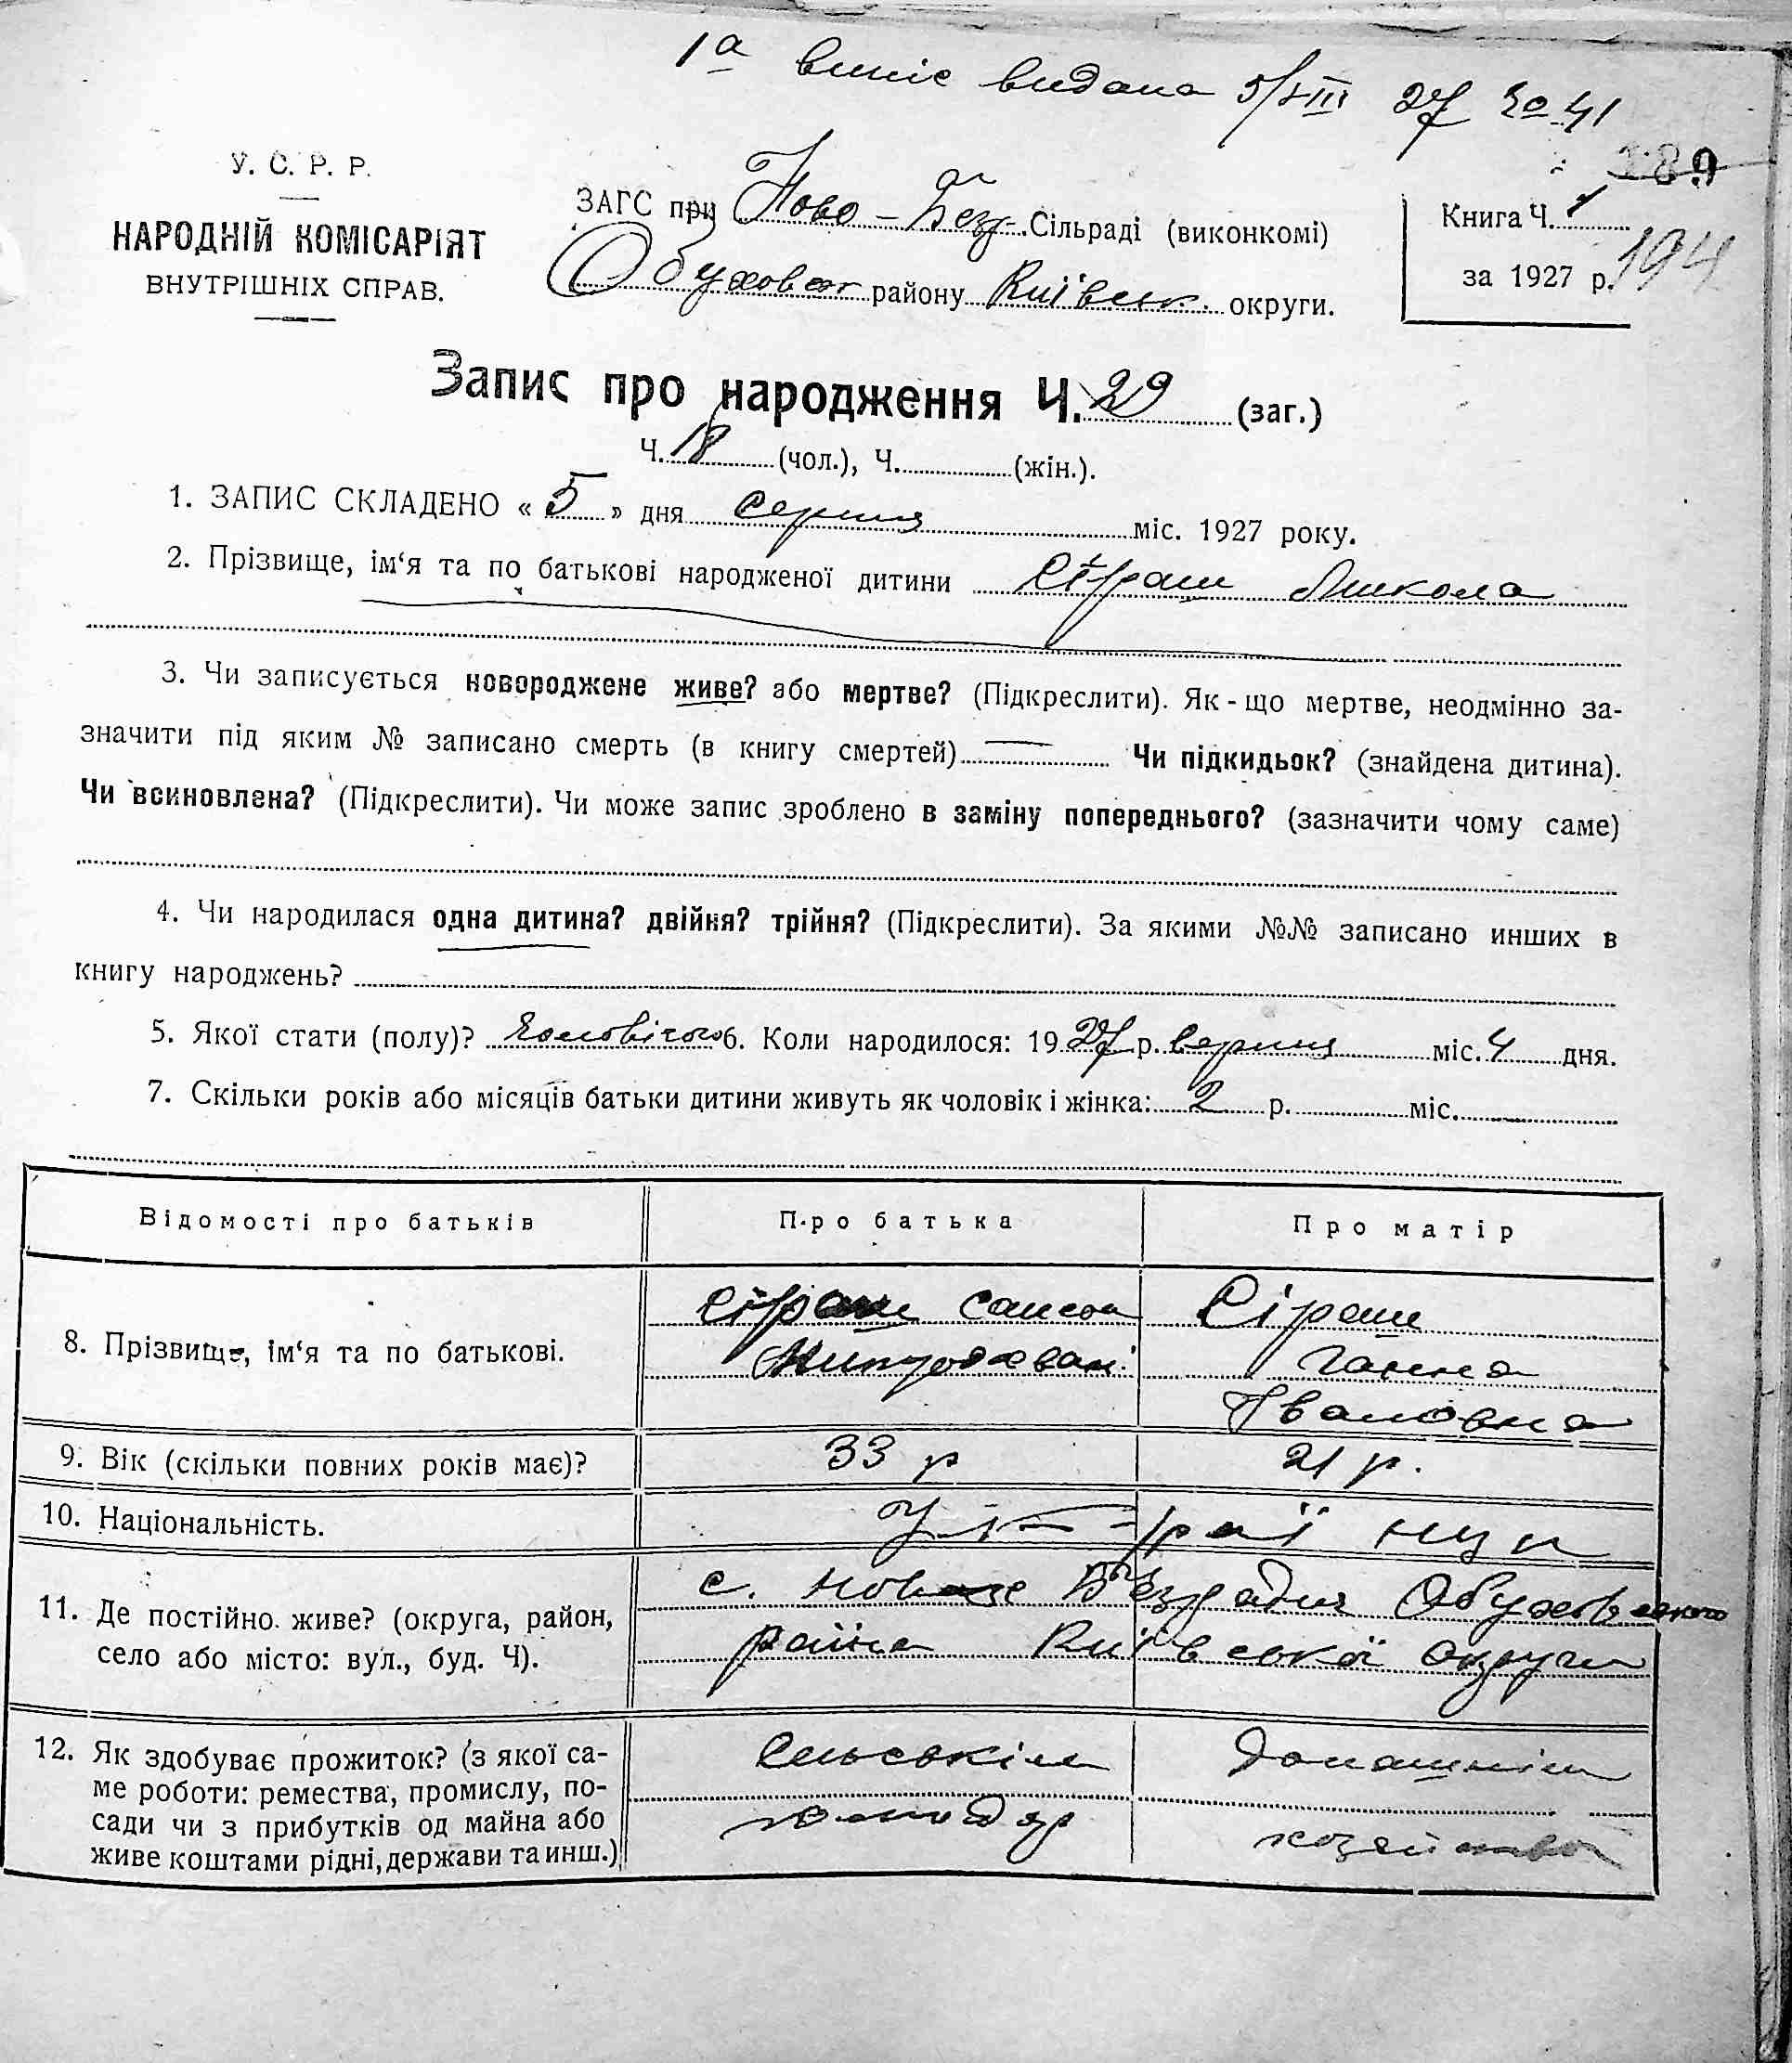 1а випис видана 5/VIII 27 № 41
189
У. С. Р. Р.
НАРОДНІЙ КОМІСАРІЯТ
ВНУТРІШНІХ СПРАВ.
ЗАГС при Ново-Безр. Сільраді (виконкомі)
Обуховск району Київськ. округи.
Книга Ч. 1
за 1927 р.
194
Запис про народження Ч. 29 (заг.)
Ч. 18 (чол.), Ч. (жін.).
1. ЗАПИС СКЛАДЕНО « 5 » дня серпня міс. 1927 року.
2. Прізвище, ім‘я та по батькові народженої дитини Сіраш Микола
3. Чи записується новороджене живе? або мертве? (Підкреслити). Як-що мертве, неодмінно за-
значити під яким № записано смерть (в книгу смертей) — Чи підкидьок? (знайдена дитина).
Чи всиновлена? (Підкреслити). Чи може запис зроблено в заміну попереднього? (зазначити чому саме)
4. Чи народилася одна дитина? двійня? трійня? (Підкреслити). За якими №№ записано инших в
книгу народжень?
5. Якої стати (полу)? чоловічого 6. Коли народилося: 1927 р. серпня міс. 4 дня.
7. Скільки років або місяців батьки дитини живуть як чоловік і жінка: 2 р. міс.
Відомості про батьків Про батька Про матір
8. Прізвище, ім‘я та по батькові.
Сіраш Самсон
Сіраш
Ганна
Івановна
9. Вік (скільки повних років має)? 33 р 21 р.
10. Національність. Українци
11. Де постійно живе? (округа, район,
село або місто: вул., буд. Ч).
с. Нові Безрадичі Обуховського
района Київської округи
12. Як здобуває прожиток? (з якої са-
ме роботи: ремества, промислу, по-
сади чи з прибутків од майна або
живе коштами рідні, держави та инш.)
Сільскім
господар
домашнім
хозяйством